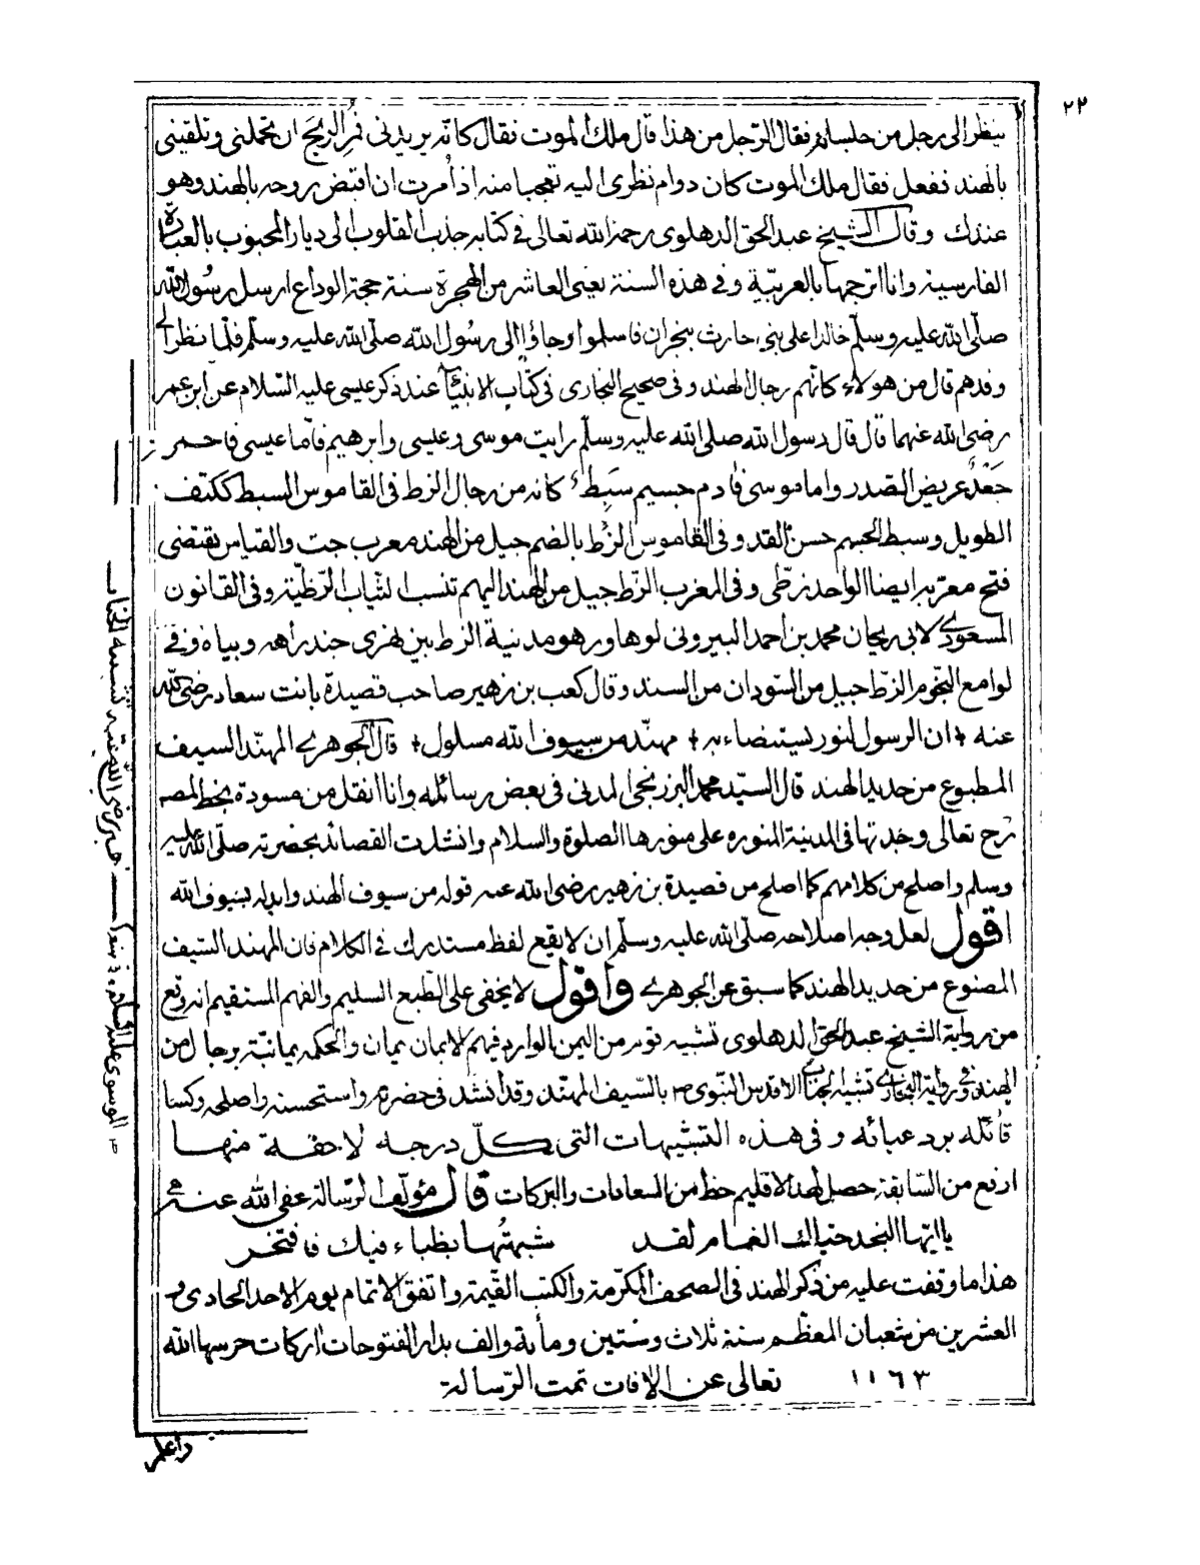 ٢٢
ينظر الى رجل من جلسائه فقال الرجل من هذا قال ملك الموت فقال كانه يريدنى فمر الريح ان تحملنى وتلقينى
بالهند ففعل فقال ملك الموت كان دوام نظرى اليه تعجبا منه اذ امرت ان اقبض روحه بالهند وهو
عندك وقال الشيخ عبد الحق الدهلوى رحمه الله تعالى فى كتابه جذب القلوب الى ديار المحبوب بالعبارة
الفارسية وانا اترجمها بالعربيّة وفى هذه السنة يعنى العاشر من الهجرة سنة حجة الوداع ارسل رسول الله
صلّى الله عليه وسلّم خالدا على بنى حارث بنجران فاسلموا وجاؤا الى رسُول الله صلّى الله عليه وسلّم فلمّا نظر الى
وفدهم قال من هولاء كانّهم رجال الهند وفى صحيح البخارى فى كتاب الانبيآء عند ذكر عيسى عليه السّلام عن ابن عمر
رضى الله عنهما قال قال رسول الله صلى الله عليه وسلّم رايت موسى وعيسى وابرهيم فامّا عيسى فاحمر
جَعْدٌ عريض الصّدر واما موسى فآدم جسيم سَبِطٌ كانه من رجال الزط فى القاموس السبط ككتف
الطويل وسبط الجسم حسن القد وفى القاموس الزُّط بالضم جيل من الهند معرب جت والقياس يقتضى
فتح معرّبه ايضا الواحد زطّى وفى المغرب الزّط جيل من الهند اليهم تنسب الثياب الزّطيّة وفى القانون
المسعودى لابى ريحان محمد بن احمد البيرونى لوهاور هو مدنية الزط بين نهرى جندراهه وبياه وفى
لوامع النّجوم الزّط جيل من السّودان من السند وقال كعب بن زهير صاحب قصيدة بانت سعاد رضى الله
عنه ان الرسول لنور يستضاء به مهنّد من سيوف الله مسلول قال الجوهرى المهنّد السيف
المطبوع من حديد الهند قال السيّد محمد البرزنجى المدنى فى بعض رسائله وانا انقل من مسودة بخط المصـ
رح تعالى وجدتها فى المدينة المنوره على منورها الصلوة والسلام وانشدت القصائد بحضرته صلّى الله عليه
وسلم واصلح من كلامهم كما اصلح من قصيدة بن زهير رضى الله عنه قوله من سيوف الهند وابدله بسيوف الله
اقول لعل وجه اصلاحه صلّى الله عليه وسلّم ان لا يقع لفظ مستدرك فى الكلام فان المهند السّيف
المصنوع من حديد الهند كما سبق عن الجوهرى واقول لا يخفى على الطّبع السليم والفهم المستقيم انه وقع
من رواية الشيخ عبد الحق الدهلوى تشبيه قوم من اليمن الوارد فيهم الايمان يمان والحكمه يمانيّة برجال من
الهند وفى رواية البخارى تشبيه الجناب الاقدس النّبوى بالسّيف المهنّد وقد انشد فى حضرته واستحسنه واصلحه وكسا
قائله برد عبائه وفى هذه التشبيهات التى كلّ درجه لاحقة منها
ارفع من السّابقة حصل لهذا الاقليم حظ من السعادات والبركات قال مؤلّف الرّسالة عفى الله عنه
يا ايّها النجد حيّاك الغمام لقد شبهتُها بظباء فيك فافتخر
هذا ما وقفت عليه من ذكر الهند فى الصحف المكرّمة والكتب القيّمة واتفق الاتمام يوم الاحد الحادى و
العشرين من شعبان المعظّم سنة ثلاث وستين ومأية والف بدار الفتوحات اركات حرسها الله
١١٦٣ تعالى عن الافات تمت الرّسالة
واعلم